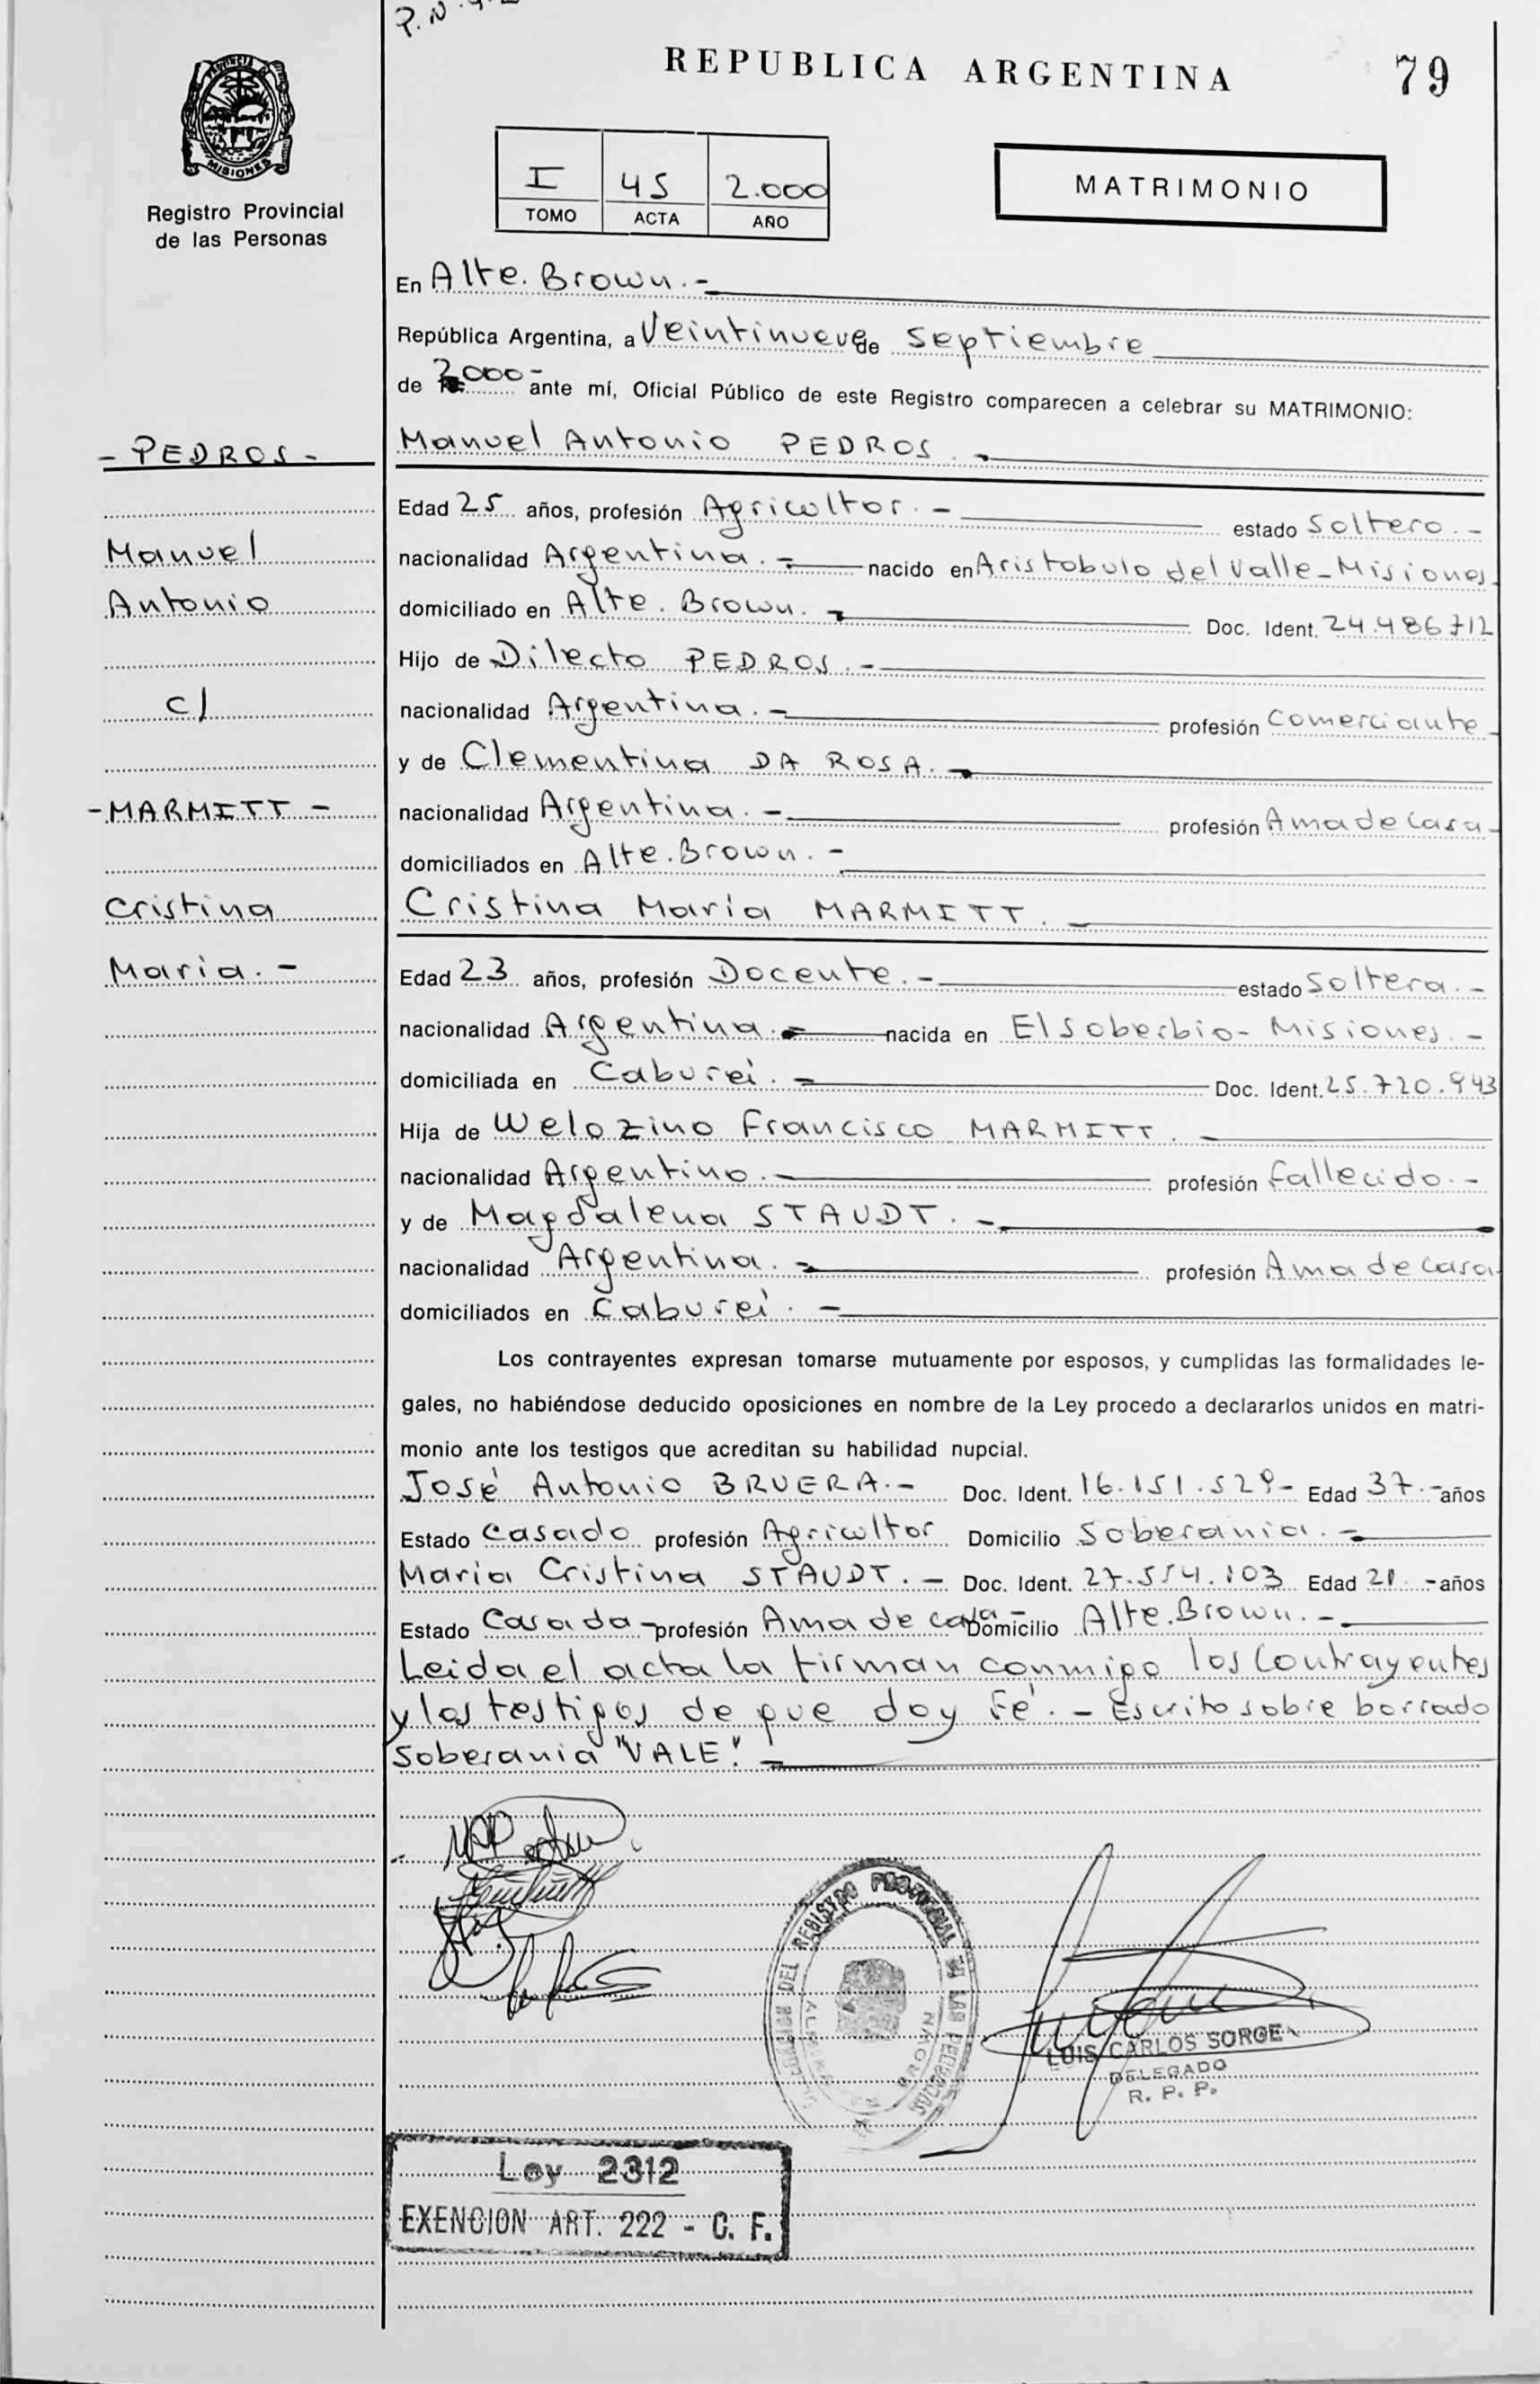 P.N.
REPUBLICA ARGENTINA
79
Provincia de
MISIONES
Registro Provincial
de las Personas
I 45 2.000
TOMO ACTA AÑO
MATRIMONIO
En Alte. Brown.-
República Argentina, a Veintinueve de Septiembre
de 2000- ante mí, Oficial Público de este Registro comparecen a celebrar su MATRIMONIO:
- PEDROS -
Manuel Antonio PEDROS.-
Edad 25 años, profesión Agricultor.- estado Soltero.-
Manuel
nacionalidad Argentina.- nacido en Aristobulo del Valle-Misiones
Antonio
domiciliado en Alte. Brown.- Doc. Ident. 24.486712
Hijo de Dilecto PEDROS.-
c/
nacionalidad Argentina.- profesión Comerciante-
y de Clementina DA ROSA.-
-MARMITT-
nacionalidad Argentina.- profesión Ama de Casa-
domiciliados en Alte. Brown.-
Cristina
Cristina María MARMITT.-
Maria.-
Edad 23 años, profesión Docente.- estado Soltera.-
nacionalidad Argentina.- nacida en El soberbio- Misiones.-
domiciliada en Caburei.- Doc. Ident. 25.720.943
Hija de Welozino Francisco MARMITT.-
nacionalidad Argentino.- profesión fallecido.-
y de Magdalena STAUDT.-
nacionalidad Argentina.- profesión Ama de Casa
domiciliados en Caburei.-
Los contrayentes expresan tomarse mutuamente por esposos, y cumplidas las formalidades le-
gales, no habiéndose deducido oposiciones en nombre de la Ley procedo a declararlos unidos en matri-
monio ante los testigos que acreditan su habilidad nupcial.
José Antonio BRUERA.- Doc. Ident. 16.151.529- Edad 37.- años
Estado Casado profesión Agricultor Domicilio Soberania.-
Maria Cristina STAUDT.- Doc. Ident. 27.554.103 Edad 21 .- años
Estado Casada- profesión Ama de casa- Domicilio Alte. Brown.-
Leida el acta la firman conmigo los Contrayentes
y los testigos de que doy Fé.- Escrito sobre borrado
Soberania "VALE".-
DEL REGISTRO PROVINCIAL DE LAS PERSONAS
LUIS CARLOS SORGE
DELEGADO
R. P. P.
Ley 2312
EXENCION ART. 222 - C. F.